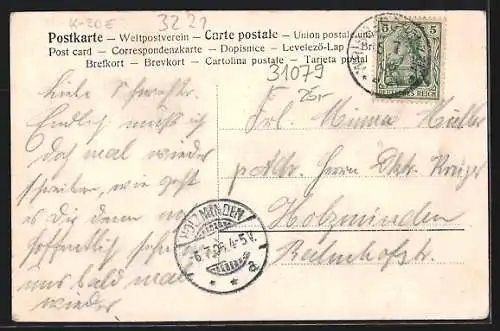 K-20E
3221
Postkarte — Weltpostverein — Carte postale — Union postale
Post card — Correspondenzkarte — Dopisnice — Levelező-Lap —
Brefkort — Brevkort — Cartolina postale — Tarjeta postal
31079
5 5
DEUTSCHES REICH
Liebe Schwester.
Endlich muß ich
doch mal wieder
schreiben, wie geht
es Dir denn
hoffentlich sehen
uns bald mal
wieder
Frl. Minna Müller
Herrn
Holzminden
Bahnhofstr.
HOLZMINDEN
6.7.05. 4-5V.
* * a